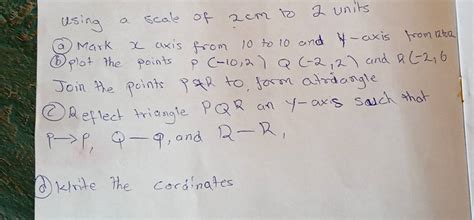 Using a scale of 2cm to 2 units
(a) Mark x axis from 10 to 10 and y-axis from 12 to 12
(b) plot the points P (-10,2) Q (-2,2) and R (-2,6
Join the points PQR to form a triangle
(c) Reflect triangle PQR an y-axis such that
P→P, Q—Q, and R—R,
(d) Write the cordinates